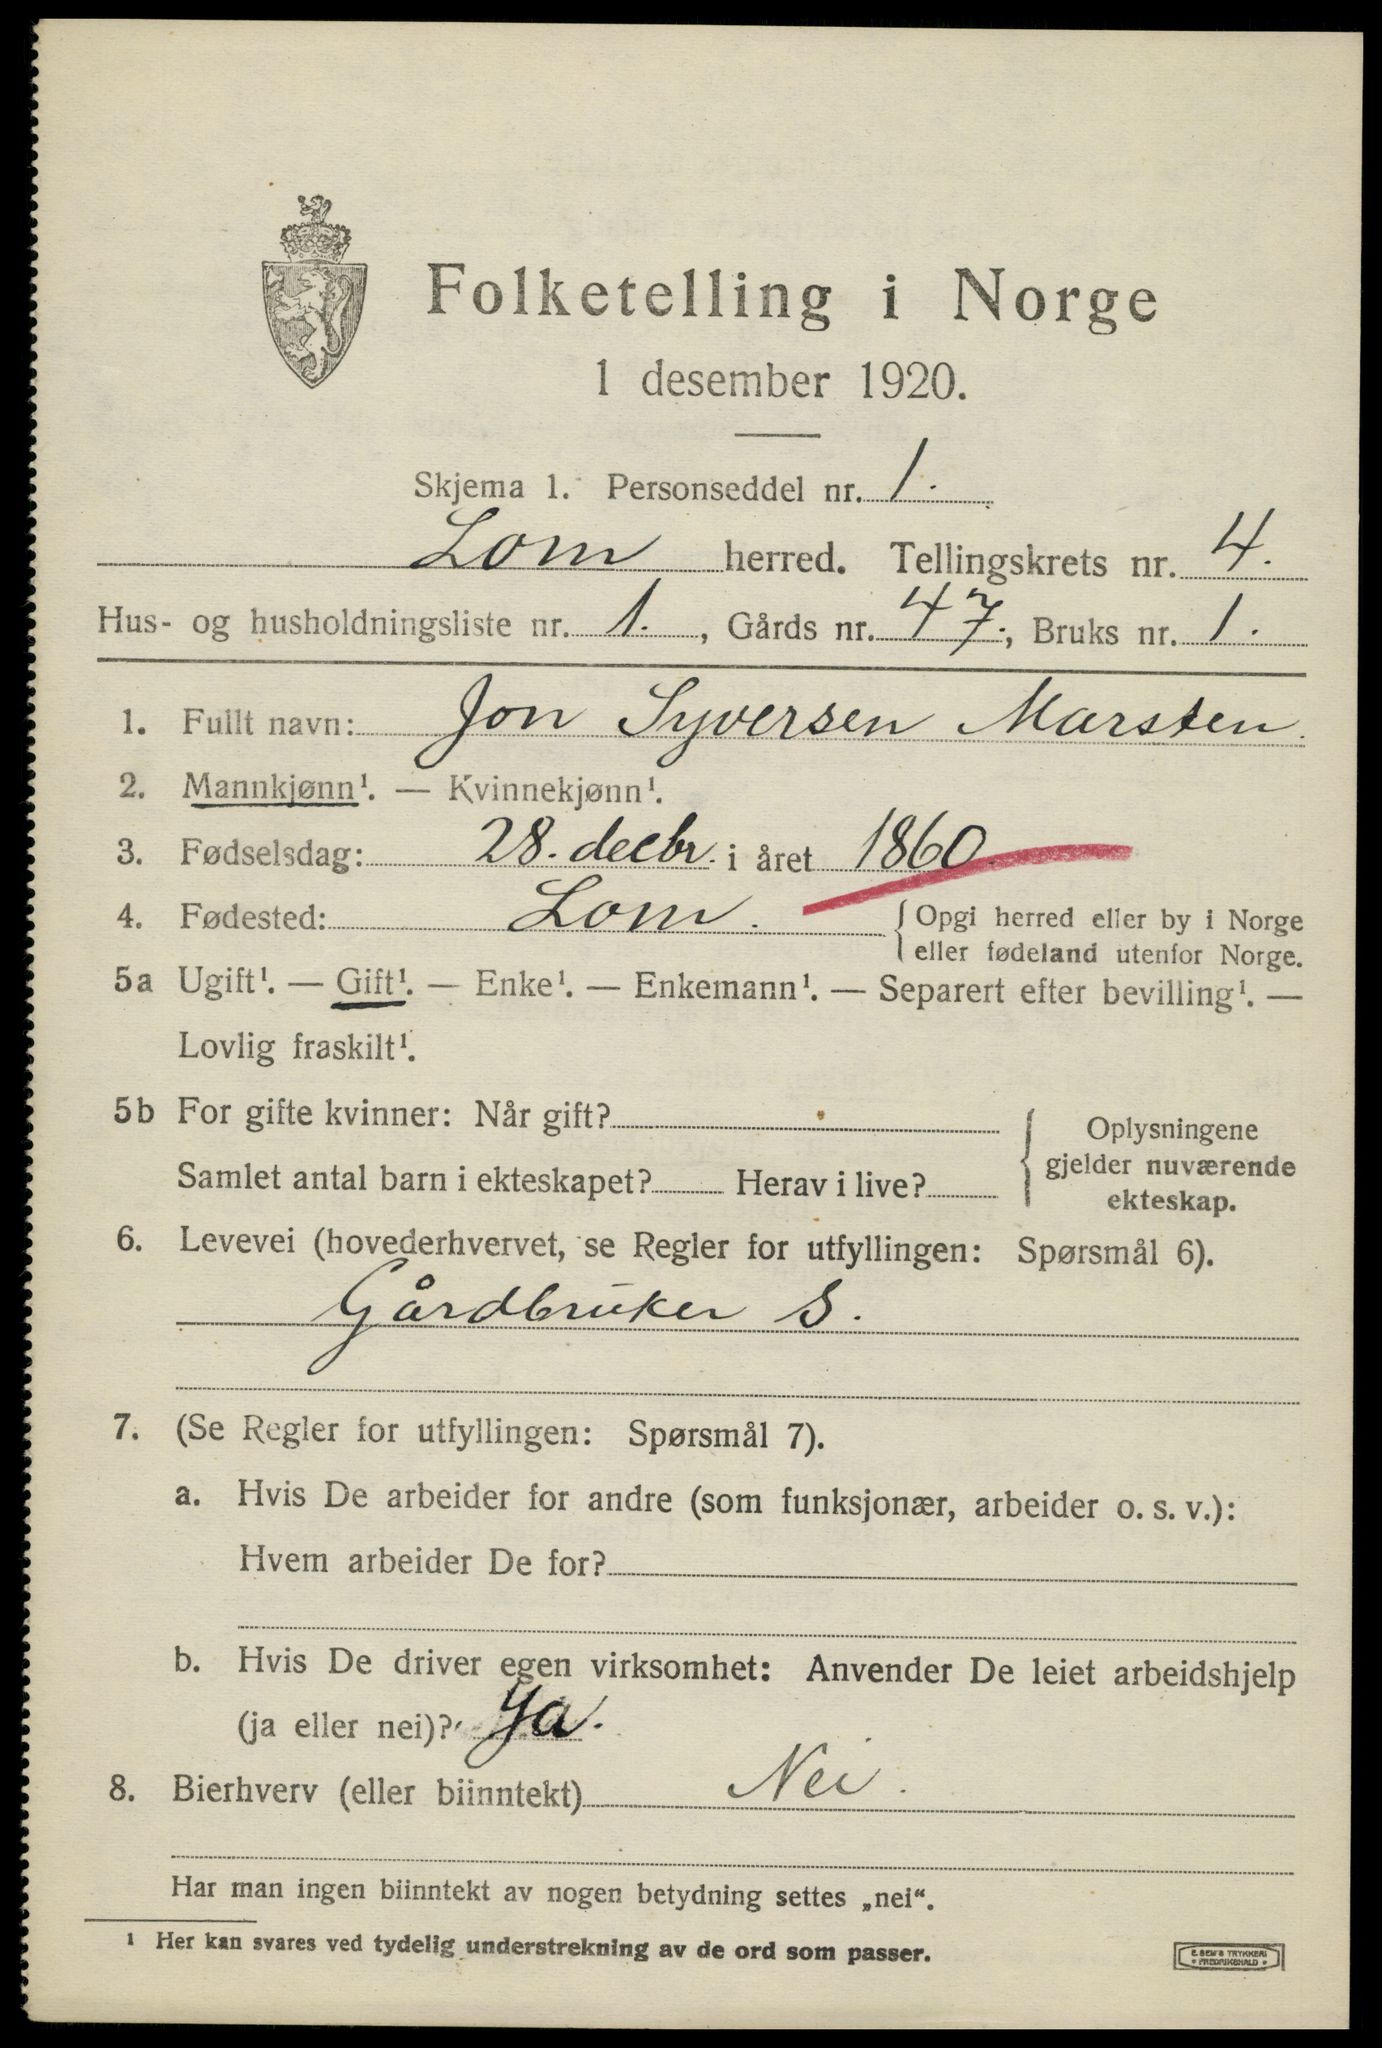 Folketelling i Norge
1 desember 1920.
Skjema 1. Personseddel nr. 1.
Lom herred. Tellingskrets nr. 4.
Hus- og husholdningsliste nr. 1. , Gårds nr. 47., Bruks nr. 1.
1. Fullt navn: Jon Syversen Marsten.
2. Mannkjønn¹. — Kvinnekjønn¹.
3. Fødselsdag: 28. decbr. i året 1860.
4. Fødested: Lom. { Opgi herred eller by i Norge
eller fødeland utenfor Norge.
5a Ugift¹. — Gift¹. — Enke¹. — Enkemann¹. — Separert efter bevilling¹. —
Lovlig fraskilt¹.
5b For gifte kvinner: Når gift?
Samlet antal barn i ekteskapet? Herav i live?
{ Oplysningene
gjelder nuværende
ekteskap.
6. Levevei (hovederhvervet, se Regler for utfyllingen: Spørsmål 6).
Gårdbruker S.
7. (Se Regler for utfyllingen: Spørsmål 7).
a. Hvis De arbeider for andre (som funksjonær, arbeider o. s. v.):
Hvem arbeider De for?
b. Hvis De driver egen virksomhet: Anvender De leiet arbeidshjelp
(ja eller nei)? Ja.
8. Bierhverv (eller biinntekt) Nei.
Har man ingen biinntekt av nogen betydning settes „nei“.
¹ Her kan svares ved tydelig understrekning av de ord som passer.
E. SEM'S TRYKKERI
* FREDRIKSHALD *